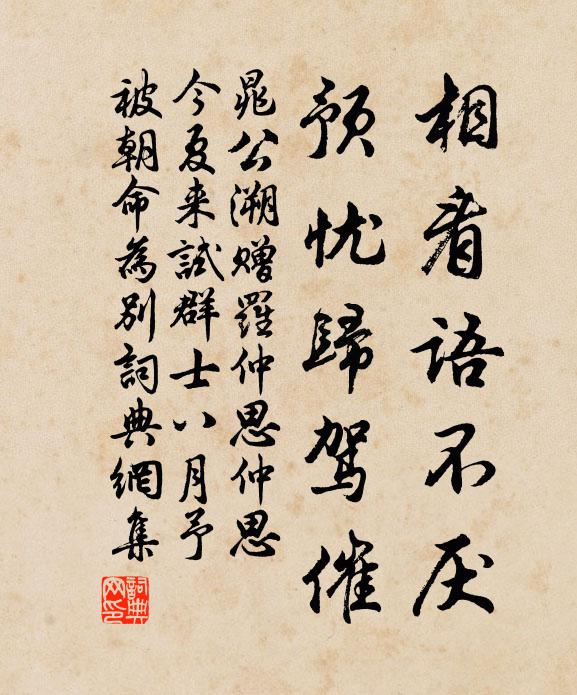 相看语不厌
预忧歸驾催
晁公溯赠羅仲思仲思
今夏来試群士八月予
被朝命為别詞典網集
詞典网印